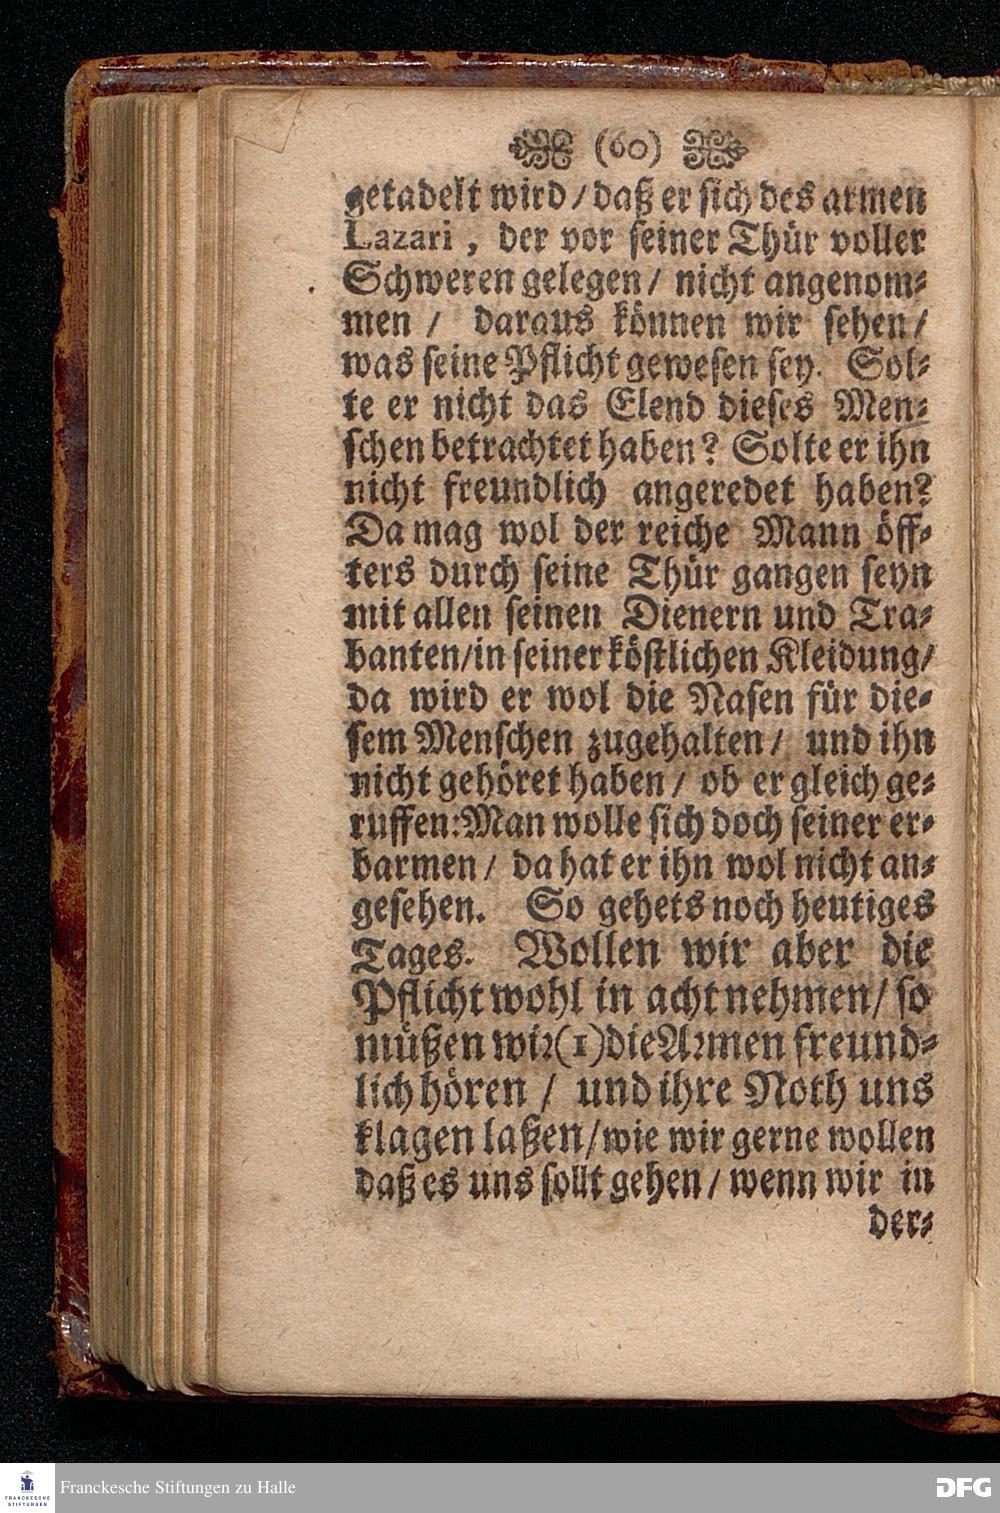 (60)
getadelt wird / daß er sich des armen
Lazari, der vor seiner Thür voller
Schweren gelegen / nicht angenom-
men / daraus können wir sehen /
was seine Pflicht gewesen sey. Sol-
te er nicht das Elend dieses Men-
schen betrachtet haben? Solte er ihn
nicht freundlich angeredet haben?
Da mag wol der reiche Mann öff-
ters durch seine Thür gangen seyn
mit allen seinen Dienern und Tra-
banten / in seiner köstlichen Kleidung /
da wird er wol die Nasen für die-
sem Menschen zugehalten / und ihn
nicht gehöret haben / ob er gleich ge-
ruffen: Man wolle sich doch seiner er-
barmen / da hat er ihn wol nicht an-
gesehen. So gehets noch heutiges
Tages. Wollen wir aber die
Pflicht wohl in acht nehmen / so
müßen wir (1) die Armen freund-
lich hören / und ihre Noth uns
klagen laßen / wie wir gerne wollen
daß es uns sollt gehen / wenn wir in
der-
FRANCKESCHE STIFTUNGEN
Franckesche Stiftungen zu Halle
DFG